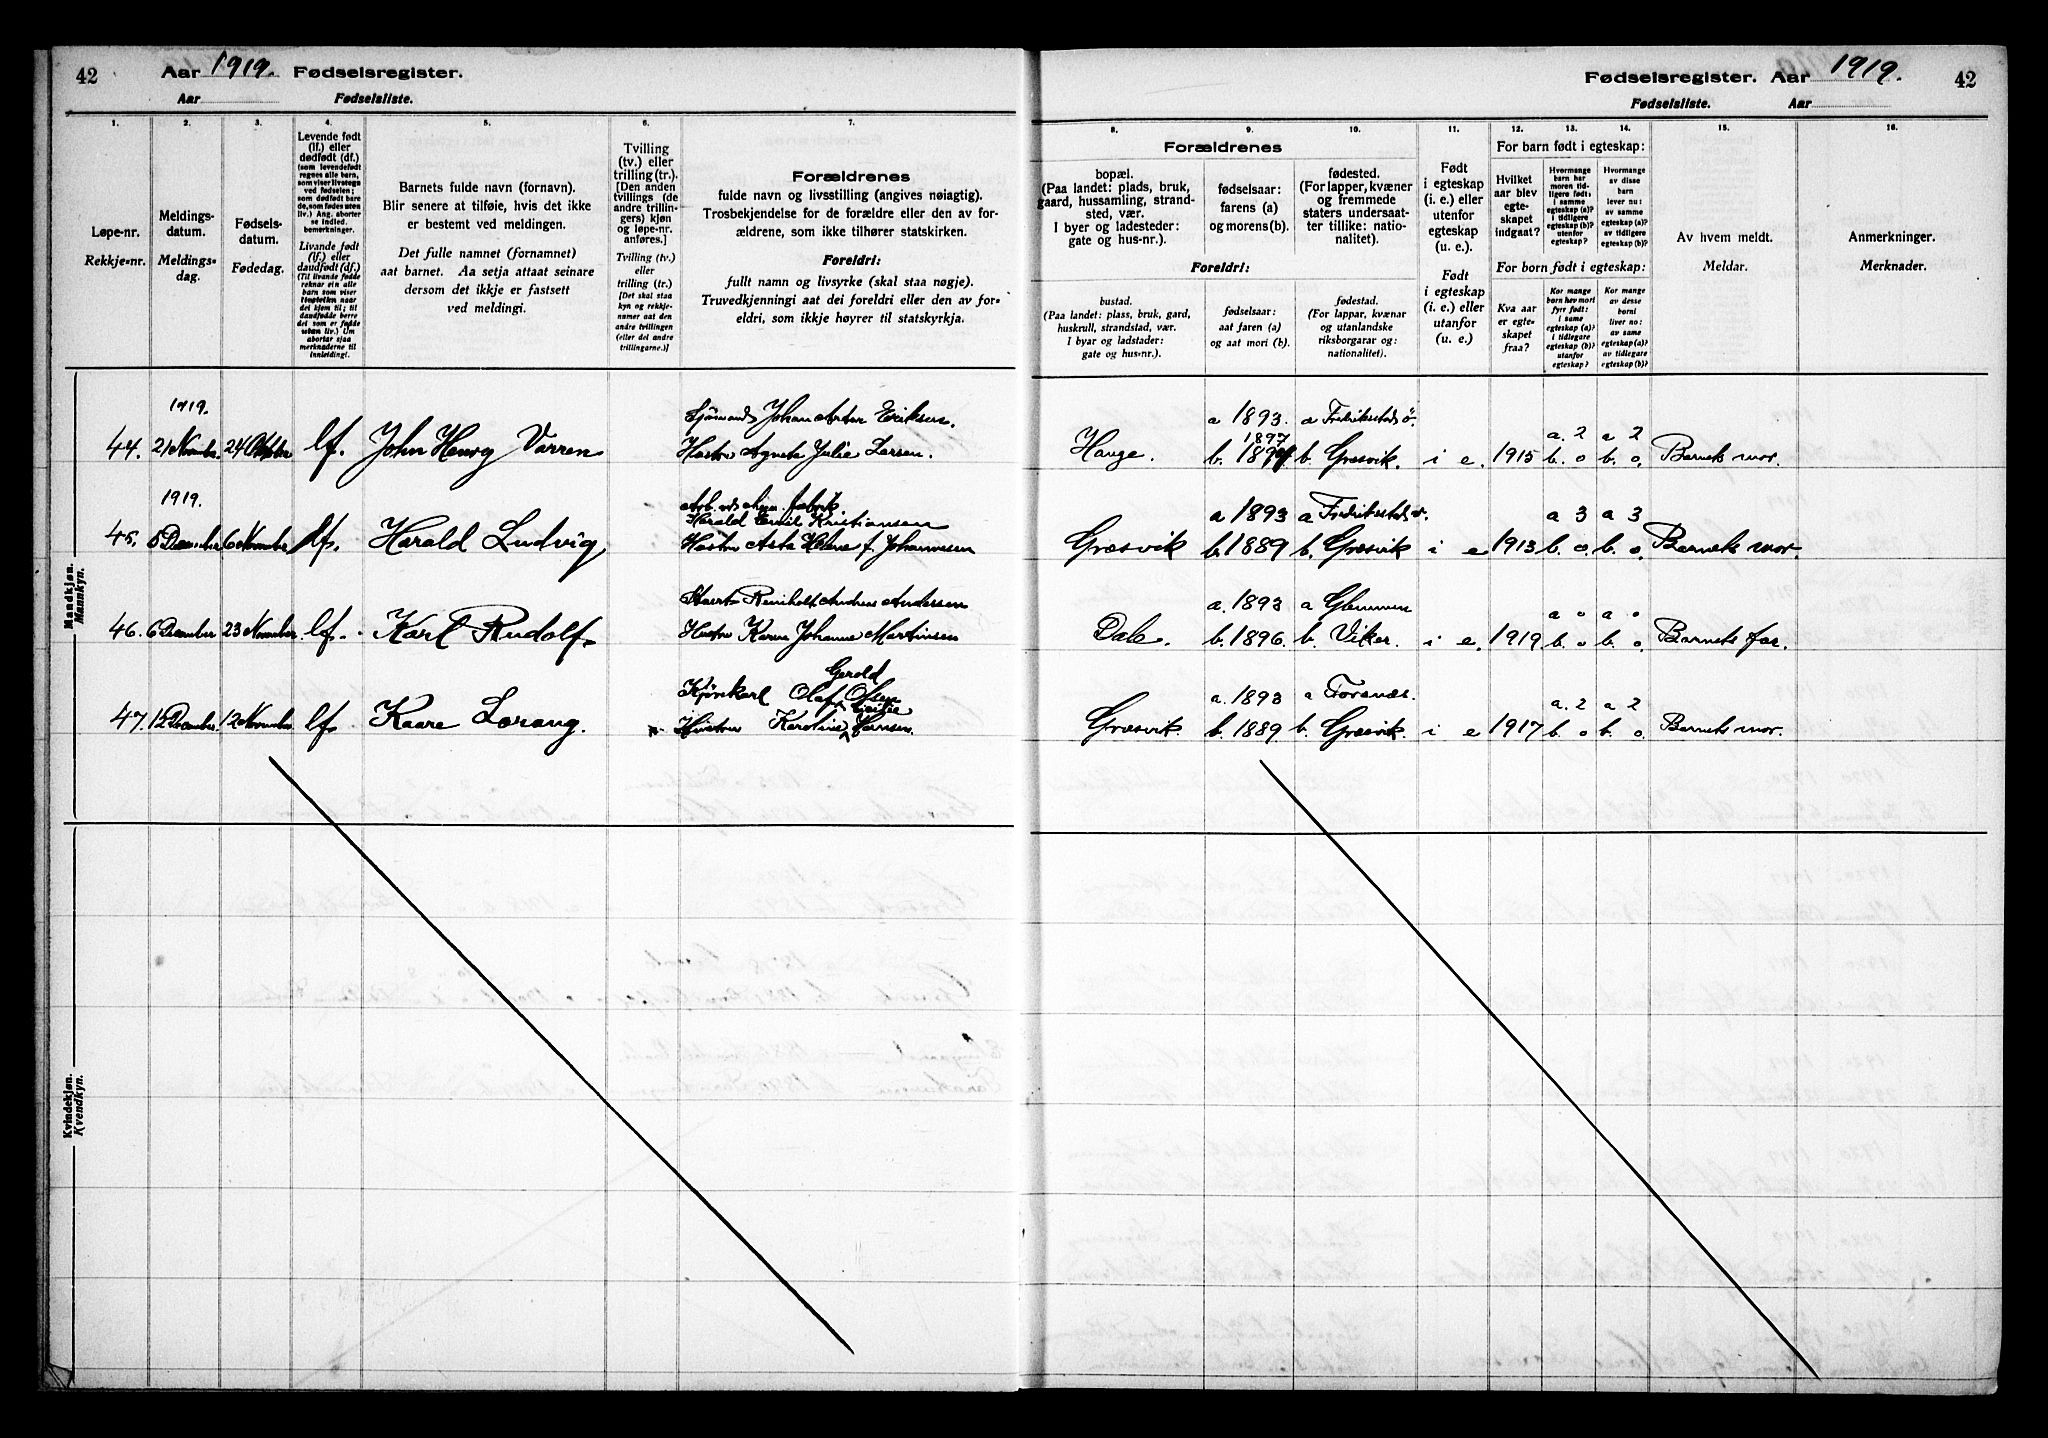 42 Aar 1919. Fødselsregister.
Aar Fødselsliste.
Fødselsregister. Aar 1919. 42
Fødselsliste. Aar
1. 2. 3. 4. 5. 6. 7.
Løpe-nr.
Rekkje-nr.
Meldings-
datum.
Meldings-
dag.
Fødsels-
datum.
Fødedag.
Levende født
(lf.) eller
dødfødt (df.)
(som levendefødt
regnes alle barn,
som viser livstegn
ved fødselen;
som dødfødt bare
de, som fødes uten
liv.) Ang. aborter
se indled.
bemerkninger.
Livande født
(lf.) eller
daudfødt (df.)
(Til livande fødde
reknar ein alle
barn som viser
livsteikn naar
dei kjem til; til
daudfødde berre
dei som er fødde
utan liv.) Um
abortar sjaa
merknaderne til
innleiding!
Barnets fulde navn (fornavn).
Blir senere at tilføie, hvis det ikke
er bestemt ved meldingen.
Det fulle namnet (fornamnet)
aat barnet. Aa setja attaat seinare
dersom det ikkje er fastsett
ved meldingi.
Tvilling
(tv.) eller
trilling (tr.).
[Den anden
tvillings (de
andre trillin-
gers) kjøn
og løpe-nr.
anføres.]
Tvilling (tv.)
eller
trilling (tr.)
[Det skal staa
kyn og rekkje-
numer aat den
andre tvillingen
(eller dei andre
trillingarne.)]
Forældrenes
fulde navn og livsstilling (angives nøiagtig).
Trosbekjendelse for de forældre eller den av for-
ældrene, som ikke tilhører statskirken.
Foreldri:
fullt namn og livsyrke (skal staa nøgje).
Truvedkjenningi aat dei foreldri eller den av for-
eldri, som ikkje høyrer til statskyrkja.
8. 9. 10. 11. 12. 13. 14. 15. 16.
Forældrenes
bopæl.
(Paa landet: plads, bruk,
gaard, hussamling, strand-
sted, vær.
I byer og ladesteder:
gate og hus-nr.).
fødselsaar:
farens (a)
og morens (b).
fødested.
(For lapper, kvæner
og fremmede
staters undersaat-
ter tillike: natio-
nalitet).
Foreldri:
bustad.
(Paa landet: plass, bruk, gard,
huskrull, strandstad, vær.
I byar og ladstader:
gate og hus-nr.).
fødselsaar:
aat faren (a)
og aat mori (b).
fødestad.
(For lappar, kvænar
og utanlandske
riksborgarar og:
nationalitet).
Født
i egteskap
(i. e.) eller
utenfor
egteskap
(u. e.).
Født
i egteskap
(i. e.) eller
utanfor
(u. e.)
For barn født i egteskap:
Hvilket
aar blev
egte-
skapet
indgaat?
Hvormange
barn har
moren tid-
ligere født:
i samme
egteskap (a)?
i tidligere
egteskap (b)?
utenfor
egteskap?
Hvormange
av disse
barn
lever nu:
av samme
egteskap (a)?
av tidligere
egteskap (b)?
For born født i egteskap:
Kva aar
er egte-
skapet
fraa?
Kor mange
born hev mori
fyrr født:
i same
egteskap (a)?
i tidlegare
egteskap (b)?
utanfor
egteskap?
Kor mange
av desse
borni
liver no:
av same
egteskap (a)?
av tidlegare
egteskap (b)?
Av hvem meldt.
Meldar.
Anmerkninger.
Merknader.
Mandkjøn.
Mannkyn.
1919.
Johan Eriksen.
a 1893. a Fredrikstad
1897
a. 2 a 2
44. 21 Novembr. 24 Oktober lf. John Henry Varren Hustru Agnete Julie Larsen.
Hauge. b. b. Græsvik. i e. 1915 b. o b. o. Barnets mor.
1919.
Harald Emil Kristiansen
a 1893 a Fredrikstad a 3 a 3
45. 8 December 6 November lf. Harald Ludvig Hustru Asta Helene f. Johannesen
Græsvik b. 1889 b. Græsvik i e 1913 b. o b. o. Barnets mor.
Reinholt Andreas Andersen
a. 1893 a Glemmen a o a o
46. 6 December 23 November lf. Karl Rudolf. Hustru Karen Johanne Martinsen
Dale. b. 1896. b. Viker. i e. 1919. b. o b. o. Barnets far.
Gerold
Kjørekarl Olaf Olsen
a. 1893 a Torsnæs. a. 2 a 2
47. 12 December. 12 November lf. Kaare Lorang. Hustru Karoline Hansen.
Græsvik. b. 1889. b. Græsvik. i e 1917 b. o b. o. Barnets mor.
Kvindekjøn.
Kvendkyn.